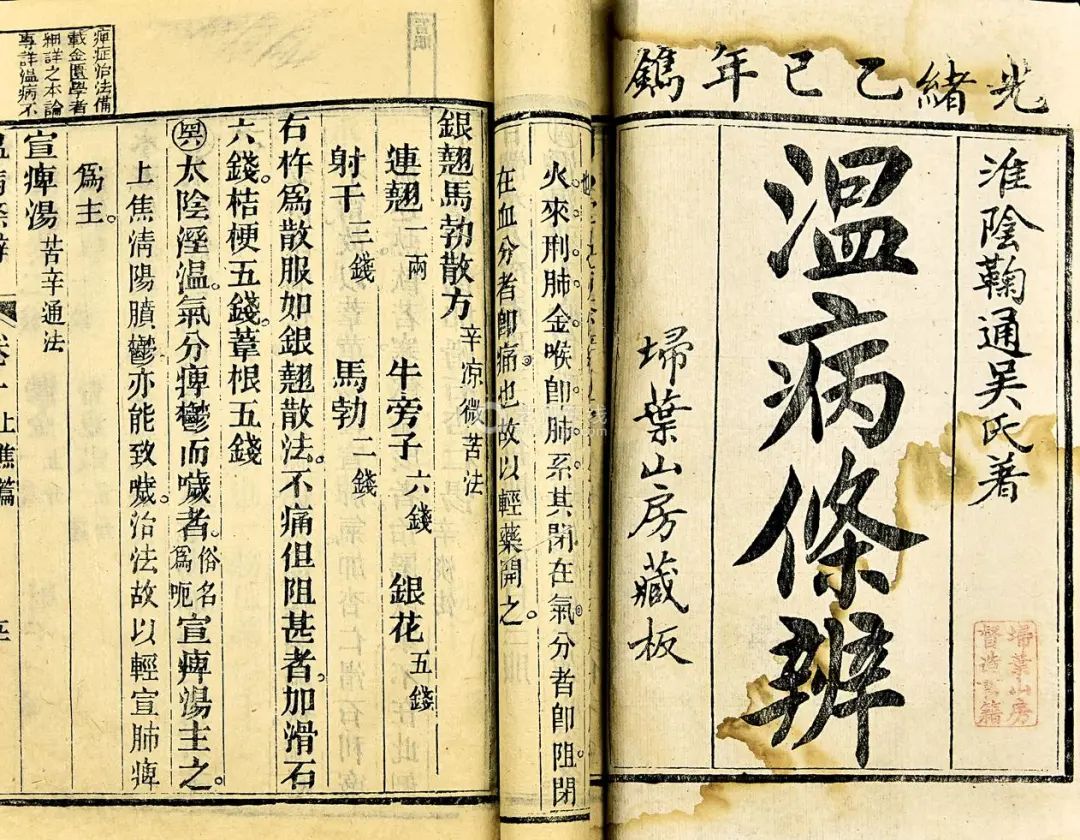 光緒乙巳年鐫
淮陰鞠通吳氏著
温病條辨
埽葉山房藏板
埽葉山房
督造書籍
火來刑肺金喉卽肺系其閉在氣分者卽阻閉
在血分者卽痛也故以輕藥開之。
銀翹馬勃散方 辛凉微苦法
連翹一兩 牛旁子六錢 銀花五錢
射干三錢 馬勃二錢
右杵爲散服如銀翹散法。不痛但阻甚者。加滑石
六錢。桔梗五錢葦根五錢
太陰溼温。氣分痺鬱而噦者。俗名爲呃宣痺湯主之。
上焦清陽膹鬱亦能致噦。治法故以輕宣肺痺
爲主。
宣痺湯 苦辛通法
痺症治法備
載金匱學者
細詳之本論
專詳温病不
上焦篇